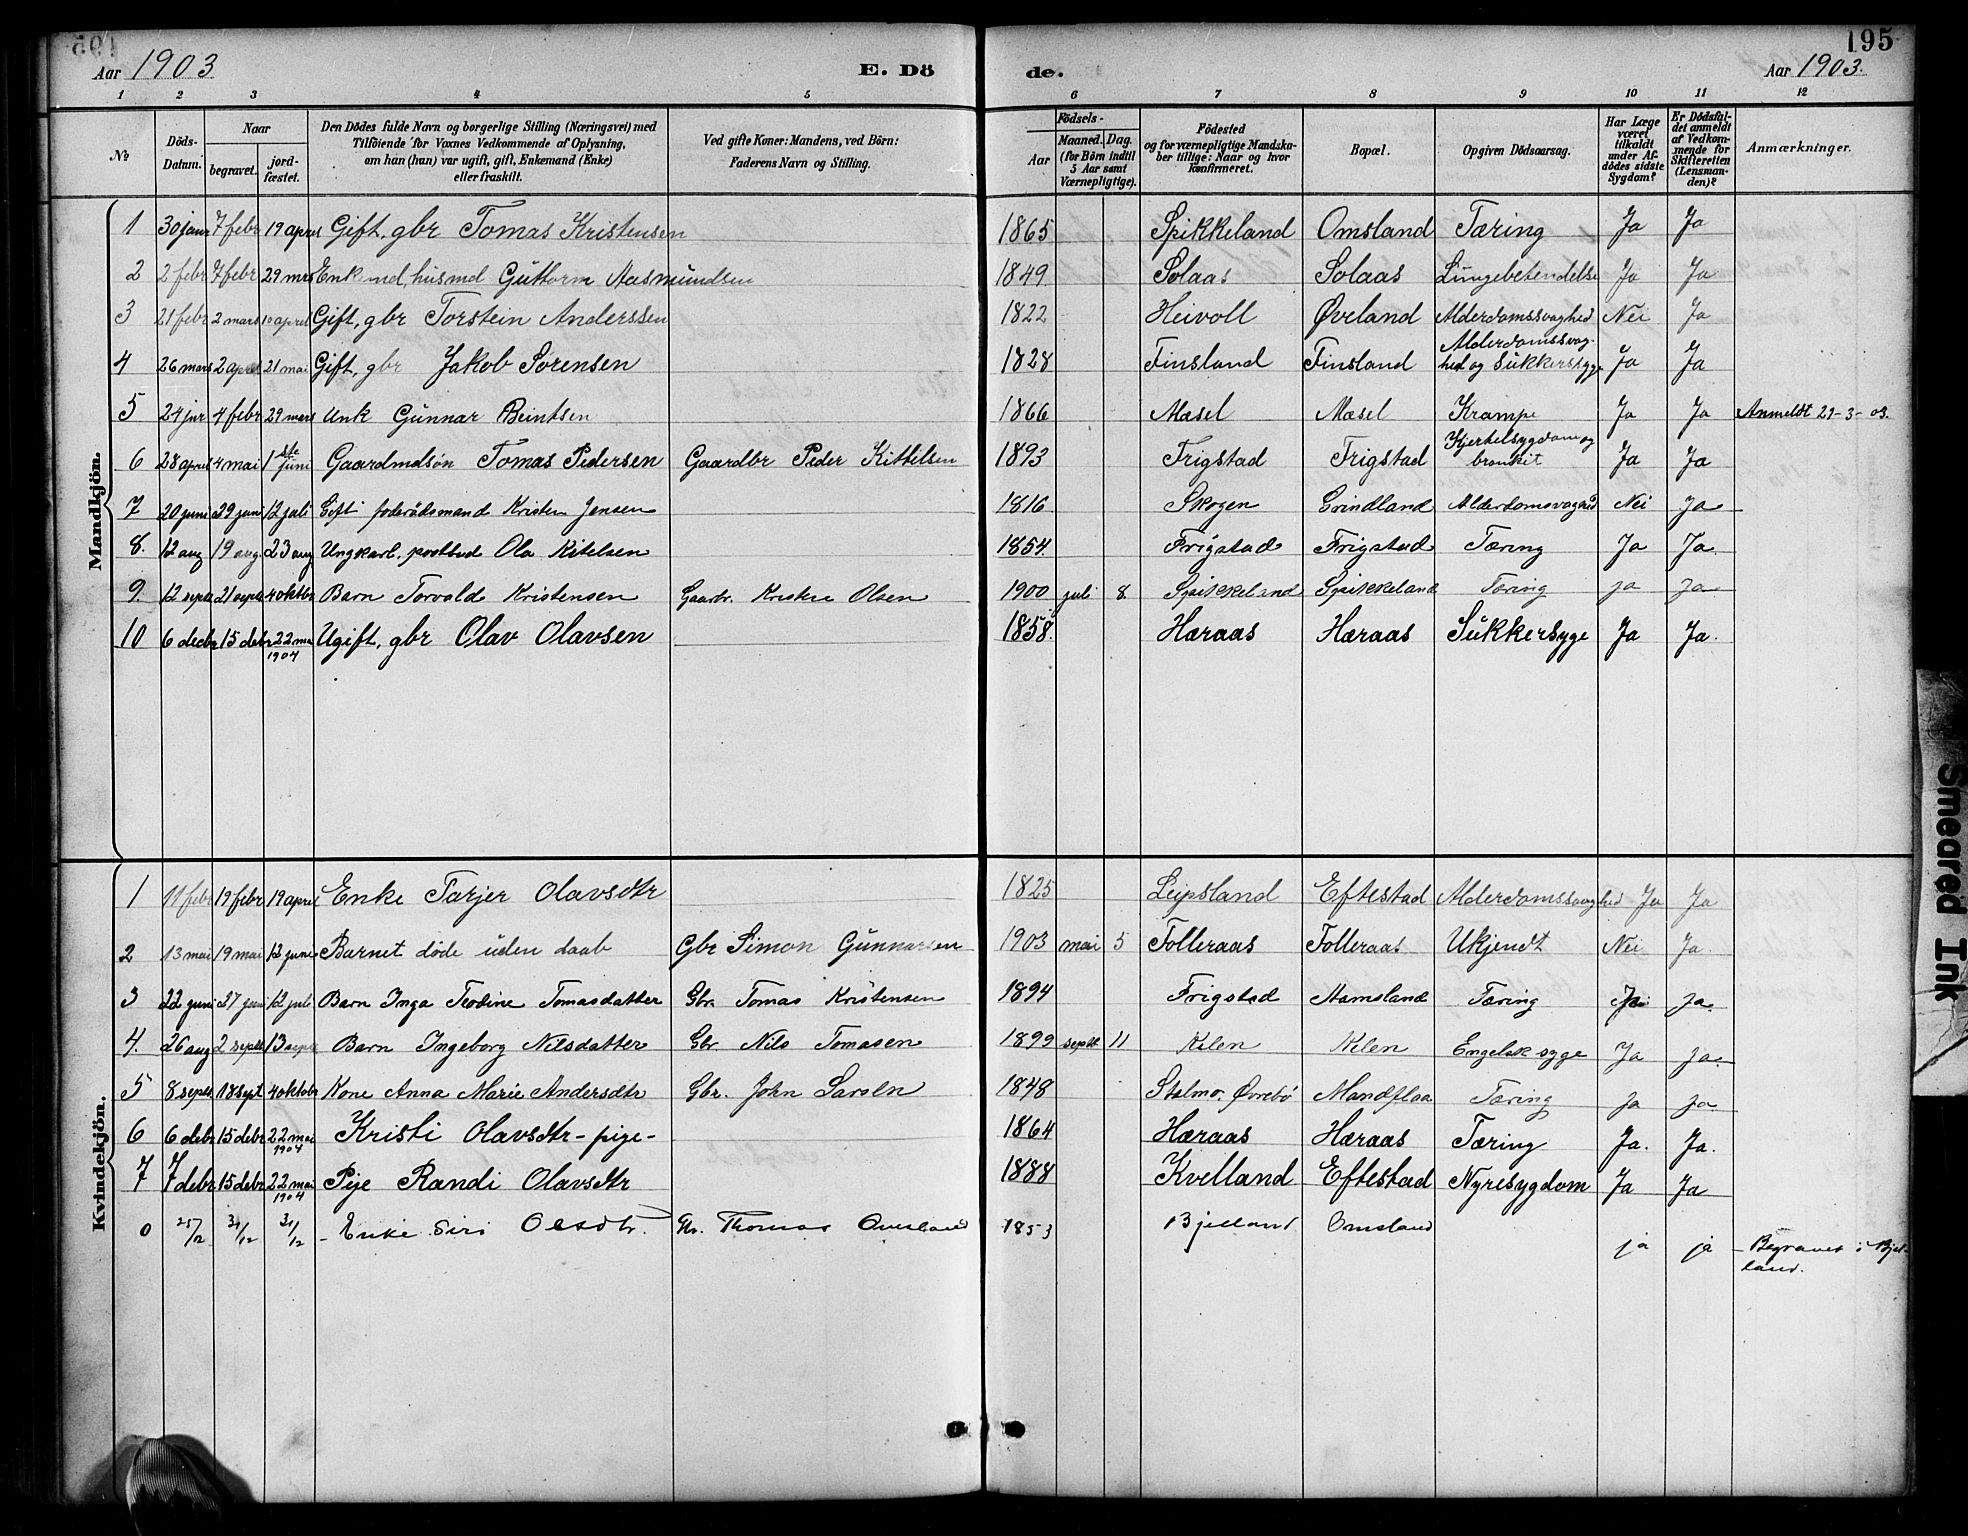 195
Aar 1903 E. Dö de. Aar 1903.
1 2 3 4 5 6 7 8 9 10 11 12
No Döds-Datum. Naar begravet. jordfæstet. Den Dödes fulde Navn og borgerlige Stilling (Næringsvei) med Tilföiende for Voxnes Vedkommende af Oplysning, om han (hun) var ugift, gift, Enkemand (Enke) eller fraskilt. Ved gifte Koner: Mandens, ved Börn: Faderens Navn og Stilling. Födsels- Aar Maaned. Dag. (for Börn indtil 5 Aar samt Værnepligtige). Födested og for værnepligtige Mandskaber tillige: Naar og hvor konfirmeret. Bopæl. Opgiven Dödsaarsag. Har Læge været tilkaldt under Afdödes sidste Sygdom? Er Dödsfaldet anmeldt af Vedkommende for Skifteretten (Lensmanden)? Anmærkninger.
Mandkjön.
1 30 janr 7 febr 19 april Gift, gbr Tomas Kristensen 1865 Spikkeland Omsland Tæring Ja Ja
2 2 febr 7 febr 29 mrs Enkmd, husmd Guttorm Aasmundsen 1849 Solaas Solaas Lungebetendelse Ja Ja
3 21 febr 2 mars 10 april Gift, gbr Torstein Anderssen 1822 Heivoll Øveland Alderdomssvaghed Nei Ja
4 26 mars 2 april 21 mai Gift, gbr Jakob Sorensen 1828 Finsland Finsland Alderdomssvaghed og Sukkersyge Ja Ja
5 24 jnr 4 febr 29 mars Unk Gunnar Beintsen 1866 Mæsel Mæsel Krampe Ja Ja Anmeldt 29-3-03.
6 28 april 4 mai 1ste juni Gaardmdsøn Tomas Pedersen Gaardbr Peder Kittelsen 1893 Frigstad Frigstad Kjertelsygdom og bronkit Ja Ja
7 20 juni 29 juni 12 juli Gift foderådsmand Kristen Jensen 1816 Skogen Grindland Alderdomsvaghed Nei Ja
8. 12 aug 19 aug 23 aug Ungkarl, postbud Ola Kitelsen 1854 Frigstad Frigstad Tæring Ja Ja.
9. 12 septr 21 septr 4 oktbr Barn Torvald Kristensen Gaardbr. Kristen Olsen 1900 juli 8. Spikkeland Spikkeland Tæring ja Ja
10 6 decbr 15 debr 22 mai 1904 Ugift, gbr Olav Olavsen 1858. Hæraas Hæraas Sukkersyge Ja Ja.
Kvindekjön.
1 11 febr 19 febr 19 april Enke Tarjer Olavsdtr 1825 Leipsland Eftestad Alderdomssvaghed Ja Ja
2 13 mai 19 mai 13 juni Barnet døde uden daab Gbr Simon Gunnarsen 1903 mai 5 Følleraas Følleraas Ukjendt Nei Ja.
3 22 juni 27 juni 12 juli Barn Inga Teodine Tomasdatter Gbr. Tomas Kristensen 1894 Frigstad Aamsland Tæring Ja Ja.
4. 26 aug 2 septbr 13 septr Barn Ingeborg Nilsdatter Gbr. Nils Tomasen 1899 septbr 11 Kilen Kilen Engelsk syge Ja Ja.
5 8 septr 18 sept 4 oktobr Kone Anna Marie Andersdtr Gbr. John Larsen 1848 Stalmo. Øvrebø Mandflaa Tæring Ja Ja
6 6 debr 15 debr 22 mai 1904 Kristi Olavsdtr - pige - 1864 Hæraas Hæraas Tæring Ja. Ja.
7 7 debr 15 debr 22 mai 1904 Pige Randi Olavsdtr 1888 Kvelland Eftestad Nyresygdom Ja Ja
0 25/12 31/12 31/12 - Enke Siri Olsdtr. Gbr. Thomas Omsland 1853 Bjelland Omsland ja ja - Begravet i Bjelland.
Smeared Ink